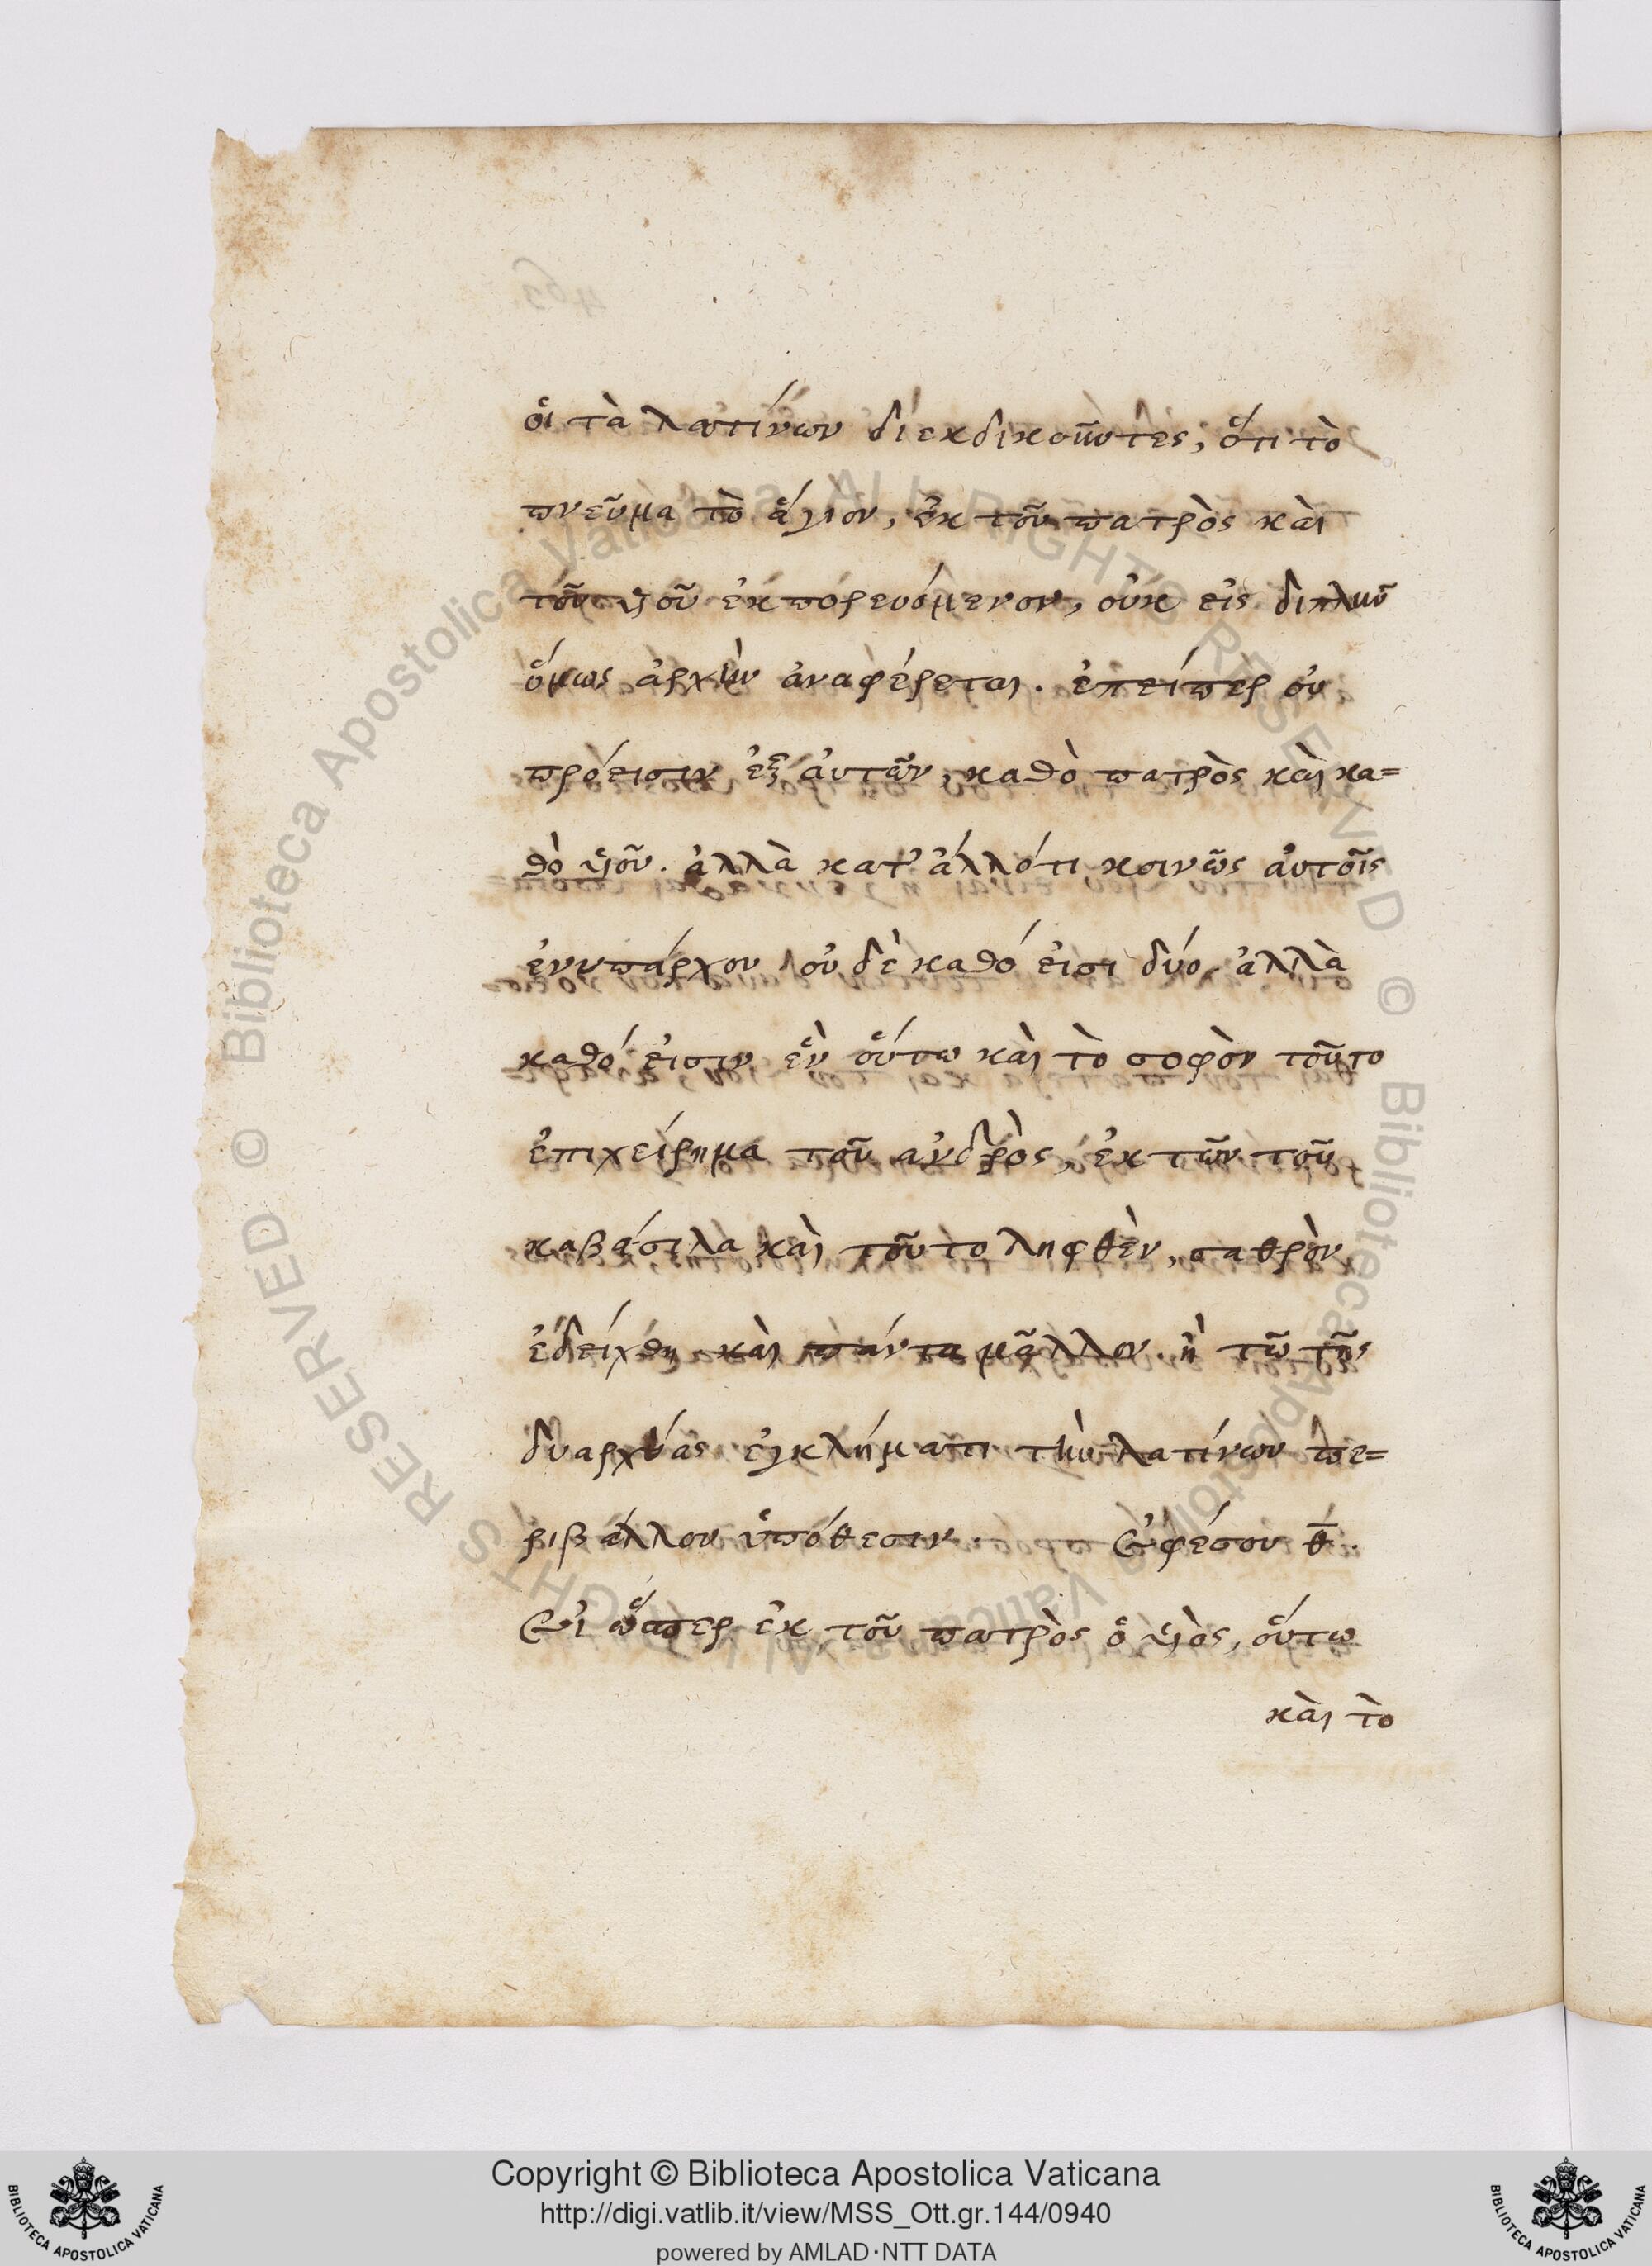 οἱ τὰ λατίνων διεκδικοῦντες, ὅτι τὸ
πνεῦμα τὸ ἅγιον, ἐκ τοῦ πατρὸς καὶ
τοῦ υἱοῦ ἐκπορευόμενον, οὐκ εἰς διπλῆν
ὅμως ἀρχὴν ἀναφέρεται. ἐπείπερ οὐ
πρόεισιν ἐξ αὐτῶν, καθὸ πατρὸς καὶ κα=
θὸ υἱοῦ. ἀλλὰ κατ' ἄλλότι κοινῶς αὐτοῖς
ἐνυπάρχον, οὐ δὲ καθό εἰσι δύο. ἀλλὰ
καθό εἰσιν ἓν οὕτω καὶ τὸ σοφὸν τοῦτο
ἐπιχείρημα τοῦ ἀνδρὸς, ἐκ τῶν τοῦ
καβάσιλα καὶ τοῦτο ληφθὲν, σαθρὸν
ἐδείχθη καὶ πάντα μᾶλλον. ἢ τῶ τῆς
δυαρχίας ἐγκλήματι τὴν λατίνων πε=
ριβάλλον ὑπόθεσιν. Ἐφέσου θ̄.
Εἰ ὥσπερ ἐκ τοῦ πατρὸς ὁ υἱὸς, οὕτω
καὶ τὸ
Copyright © Biblioteca Apostolica Vaticana
http://digi.vatlib.it/view/MSS_Ott.gr.144/0940
powered by AMLAD·NTT DATA
BIBLIOTECA APOSTOLICA VATICANA
BIBLIOTECA APOSTOLICA VATICANA
© Biblioteca Apostolica Vaticana ALL RIGHTS RESERVED © Biblioteca Apostolica Vaticana ALL RIGHTS RESERVED